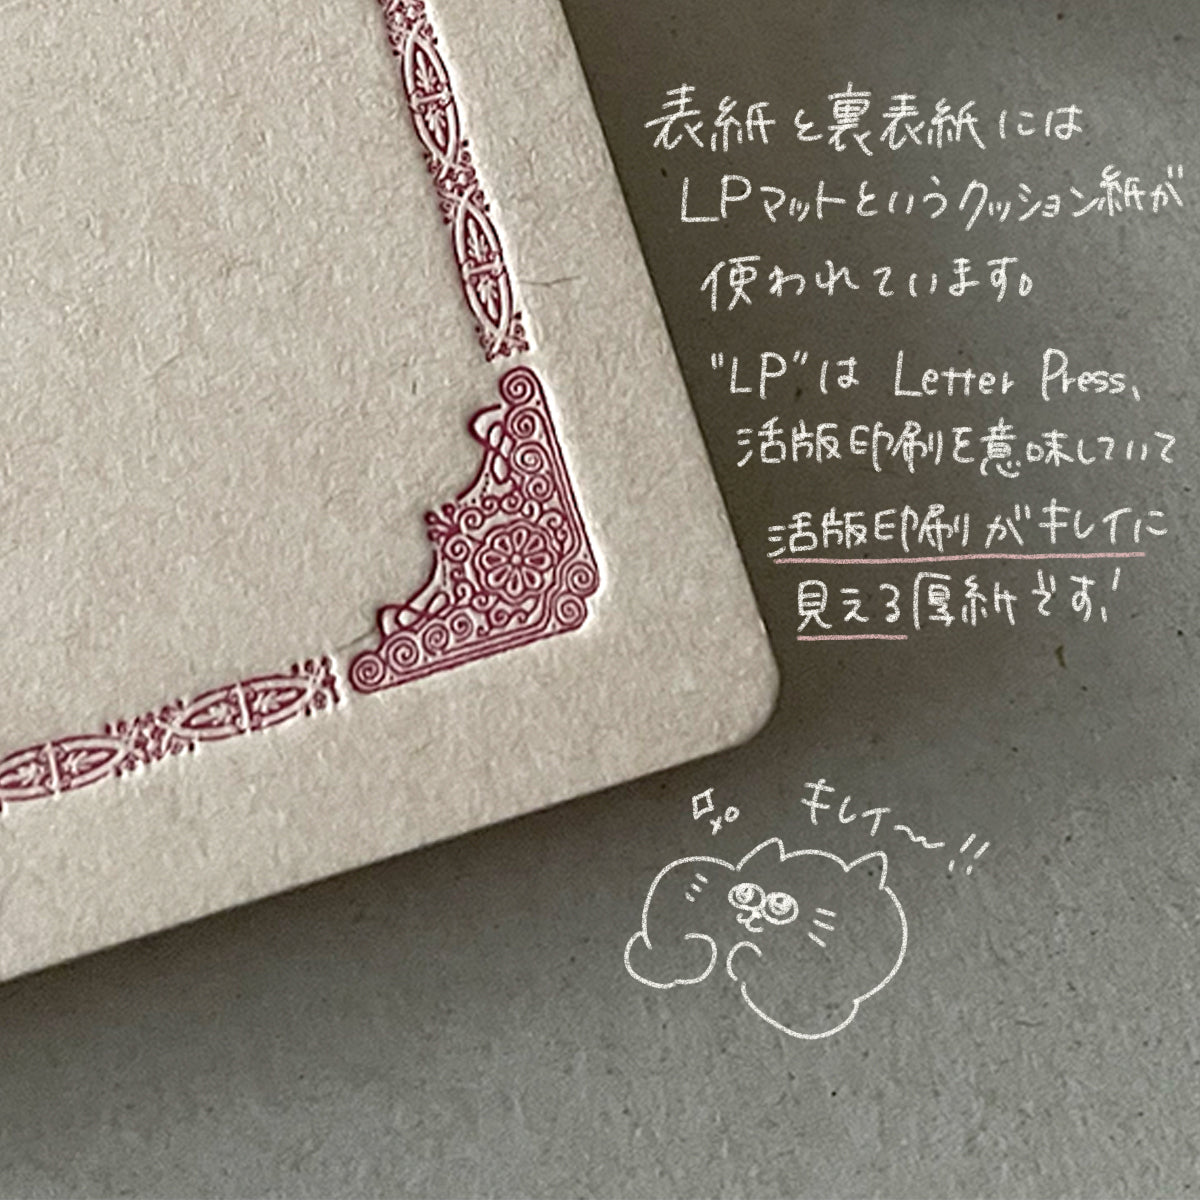 表紙と裏表紙には
LPマットというクッション紙が
使われています。
"LP"は Letter Press、
活版印刷を意味していて
活版印刷がキレイに
見える厚紙です!
キレイ〜!!